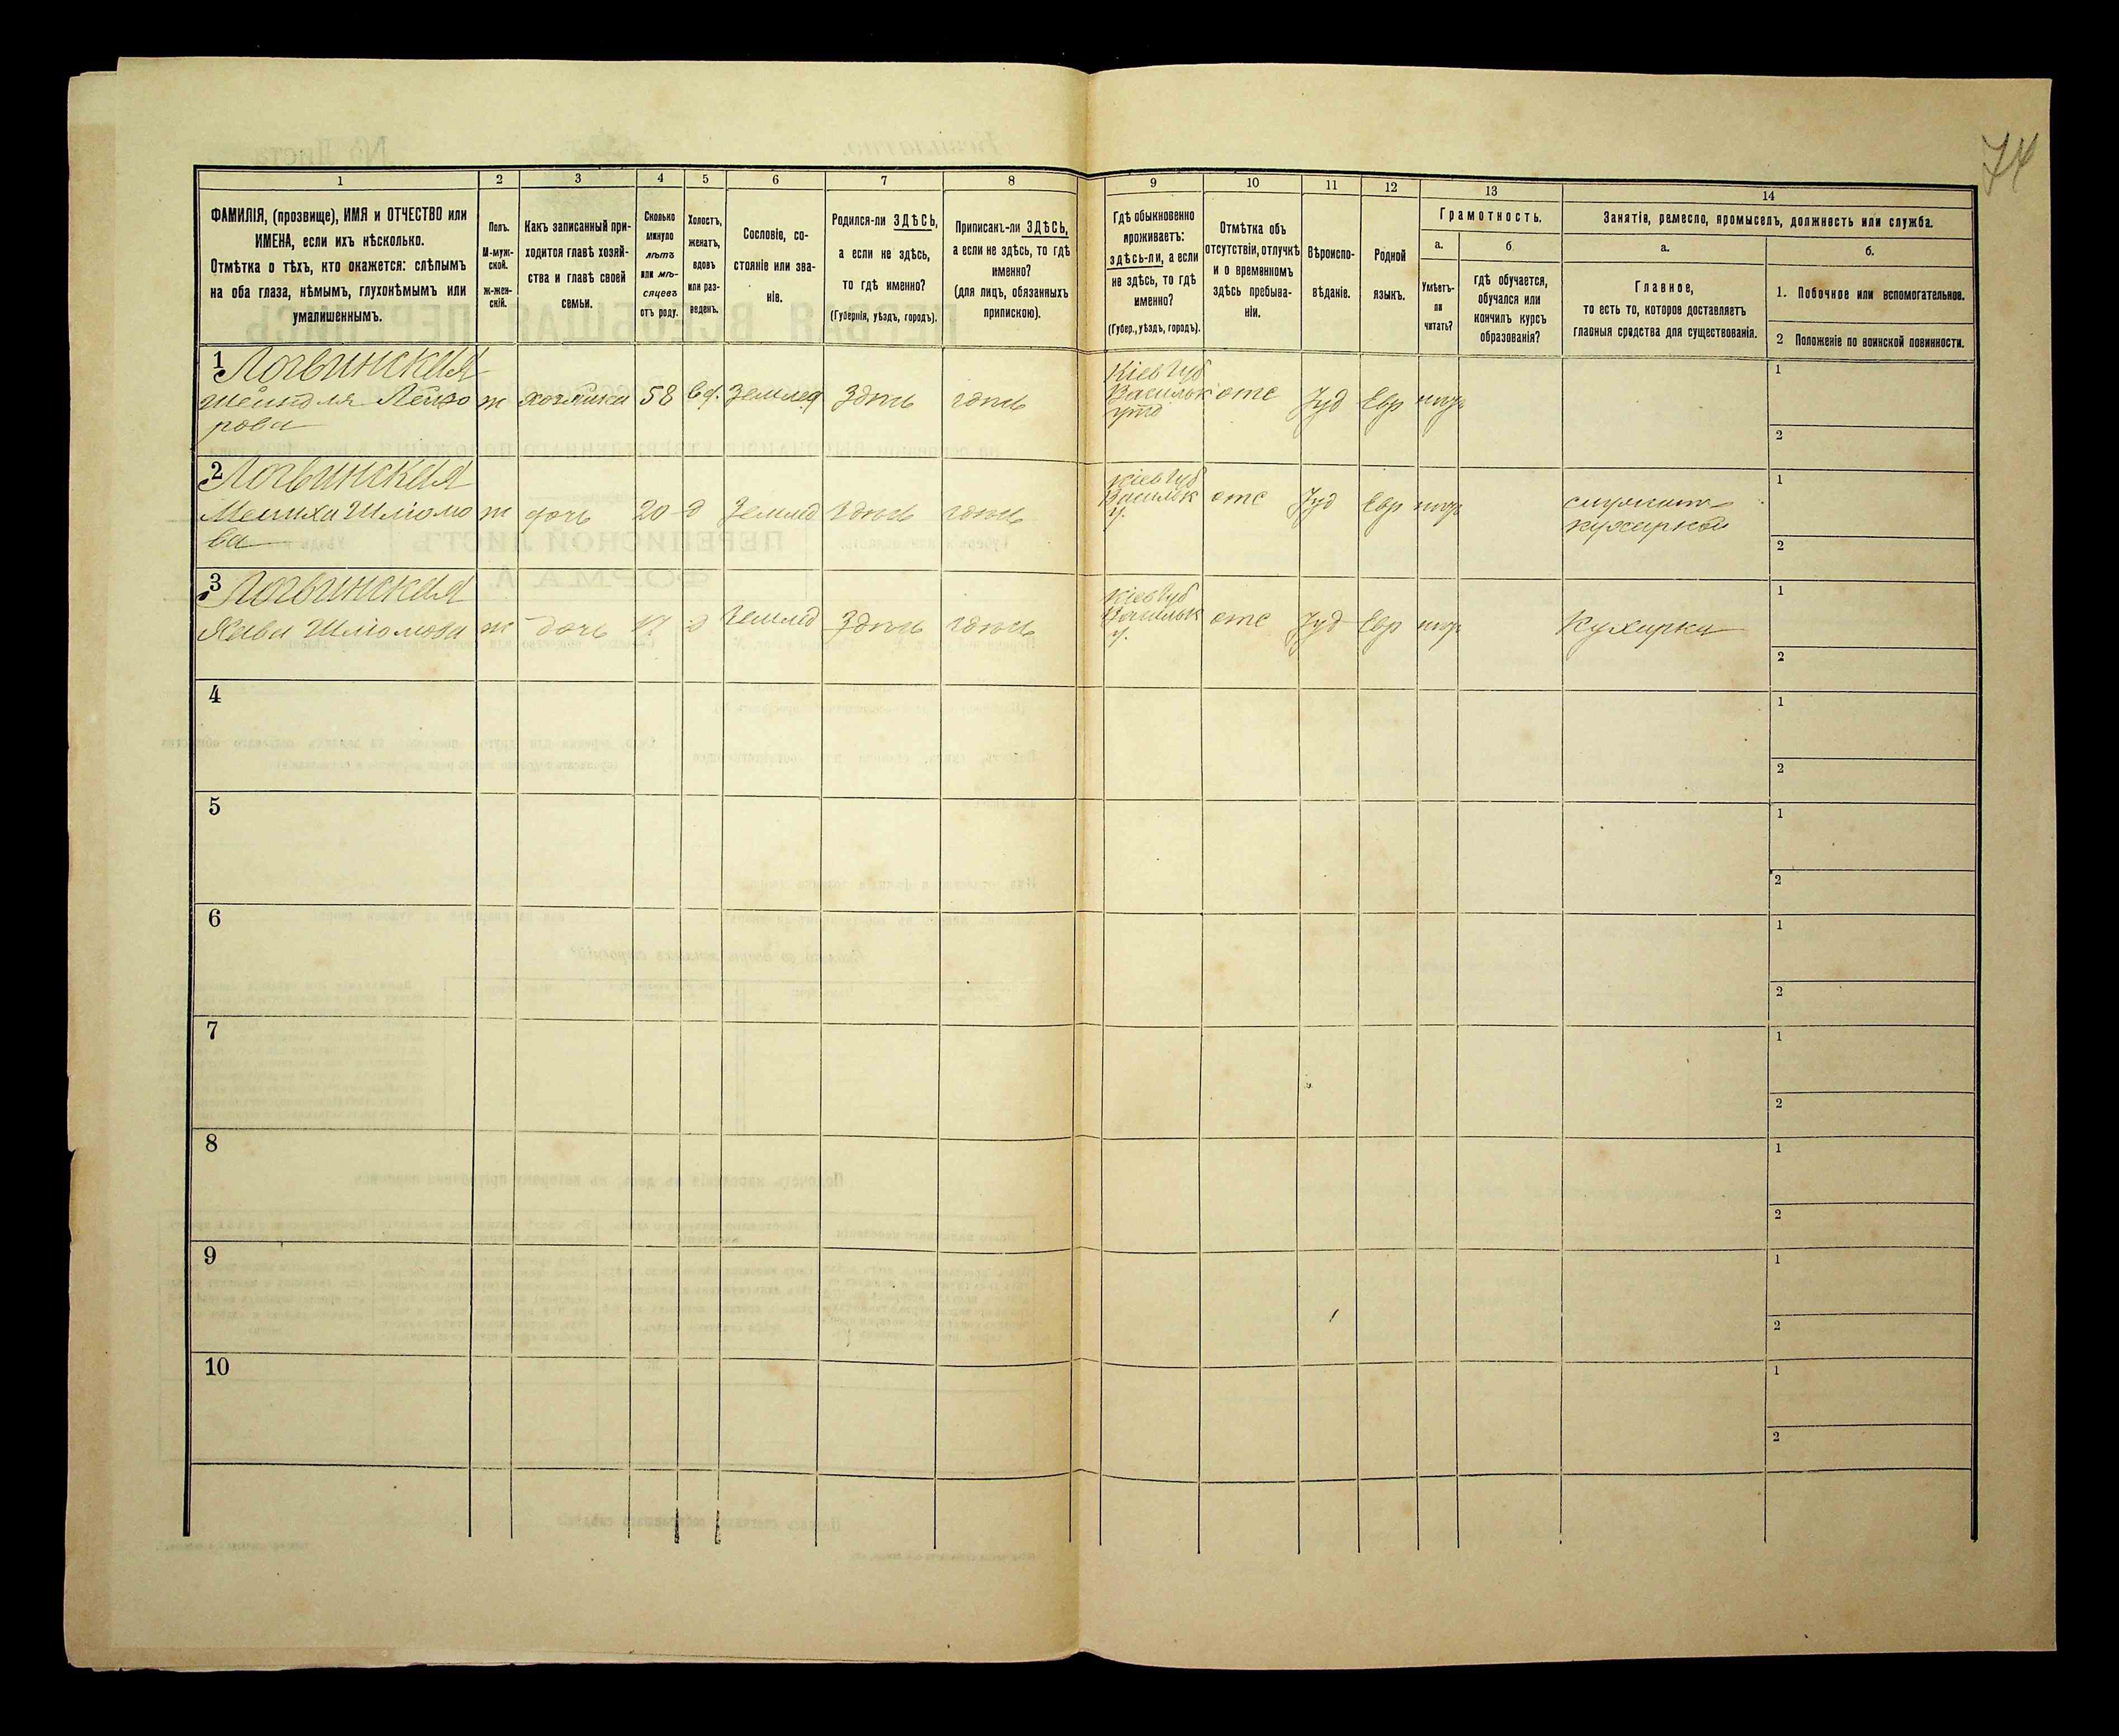 74
1
2
3
4
5
6
7
8
9
10
11
12
13
14
ФАМИЛІЯ, (прозвище), ИМЯ и ОТЧЕСТВО или
ИМЕНА, если ихъ нѣсколько.
Отмѣтка о тѣхъ, кто окажется: слѣпымъ
на оба глаза, нѣмымъ, глухонѣмымъ или
умалишеннымъ.
Полъ.
М-муж-
ской.
ж-жен-
скій.
Какъ записанный при-
ходится главѣ хозяй-
ства и главѣ своей
семьи.
Сколько
минуло
лѣтъ
или мѣ-
сяцевъ
отъ роду.
Холостъ,
женатъ,
вдовъ
или раз-
веденъ.
Сословіе, со-
стояніе или зва-
ніе.
Родился-ли ЗДѢСЬ,
а если не здѣсь,
то гдѣ именно?
(Губернія, уѣздъ, городъ).
Приписанъ-ли ЗДѢСЬ,
а если не здѣсь, то гдѣ
именно?
(для лицъ, обязанныхъ
припискою).
Гдѣ обыкновенно
проживаетъ:
здѣсь-ли, а если
не здѣсь, то гдѣ
именно?
(Губер., уѣздъ, городъ).
Отмѣтка объ
отсутствіи, отлучкѣ
и о временномъ
здѣсь пребыва-
ніи.
Вѣроиспо-
вѣданіе.
Родной
языкъ.
Грамотность.
а.
Умѣетъ-
ли
читать?
б.
гдѣ обучается,
обучался или
кончилъ курсъ
образованія?
Занятіе, ремесло, промыселъ, должность или служба.
а.
Главное,
то есть то, которое доставляетъ
главныя средства для существованія.
б.
1. Побочное или вспомогательное.
2 Положеніе по воинской повинности.
1
Логвинская
Шейндля Лейзо
рова
ж
хозяйка
58
вд.
Землед
Здѣсь
здѣсь
Кіев Губ
Васильк
уѣз
отс
Іуд
Евр
1
2
2
Логвинская
Мениха Шліомо
ва
ж
дочь
20
д
Землед
Здѣсь
здѣсь
Кіев Губ
Васильк
у.
отс
Іуд
Евр
служит
кухаркой
1
2
3
Логвинская
Хава Шліомова
ж
дочь
17
д
Землед
Здѣсь
здѣсь
Кіев Губ
Васильк
у.
отс
Іуд
Евр
Кухарка
1
2
4
1
2
5
1
2
6
1
2
7
1
2
8
1
2
9
1
2
10
1
2